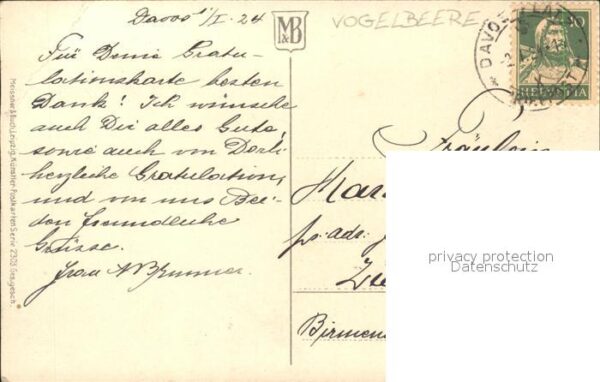 Davos 1/I. 24
Für Deine Gratu-
lationskarte besten
Dank! Ich wünsche
auch Dir alles Gute,
sowie auch von Dorli
herzliche Gratulation,
und von uns Bei-
den freundliche
Grüsse.
Frau Brunner
Meissner & Buch, Leipzig, Künstler-Postkarten Serie 2328 Ges.gesch.
M&B
VOGELBEERE
10
HELVETIA
DAVOS-PLATZ
Fräulein
Mar
pr. adr.
Zü
Birmens
privacy protection
Datenschutz